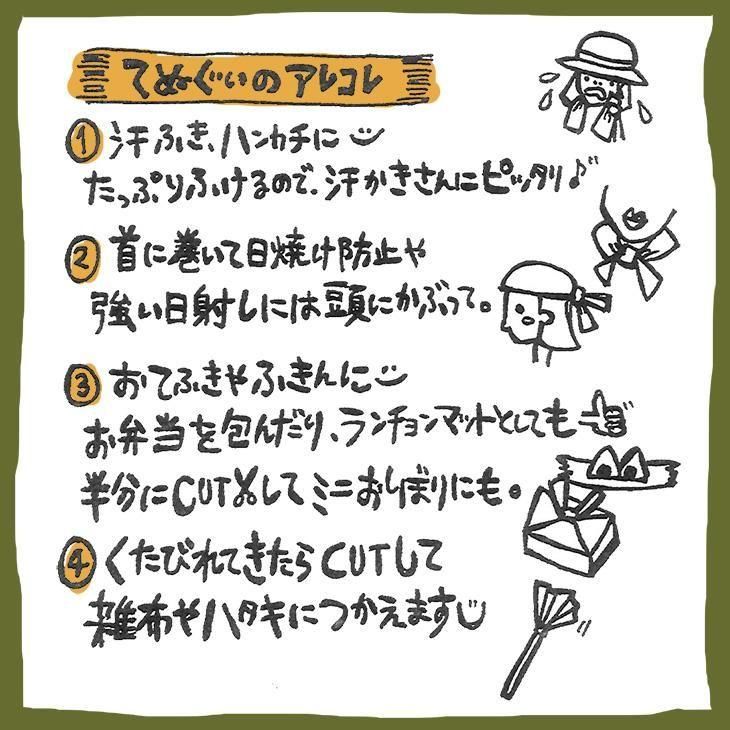 てぬぐいのアレコレ
① 汗ふき、ハンカチに
たっぷりふけるので、汗かきさんにピッタリ♪
② 首に巻いて日焼け防止や
強い日射しには頭にかぶって。
③ おてふきやふきんに
お弁当を包んだり、ランチョンマットとしても
半分にCUTしてミニおしぼりにも。
④ くたびれてきたらCUTして
雑布やハタキにつかえます